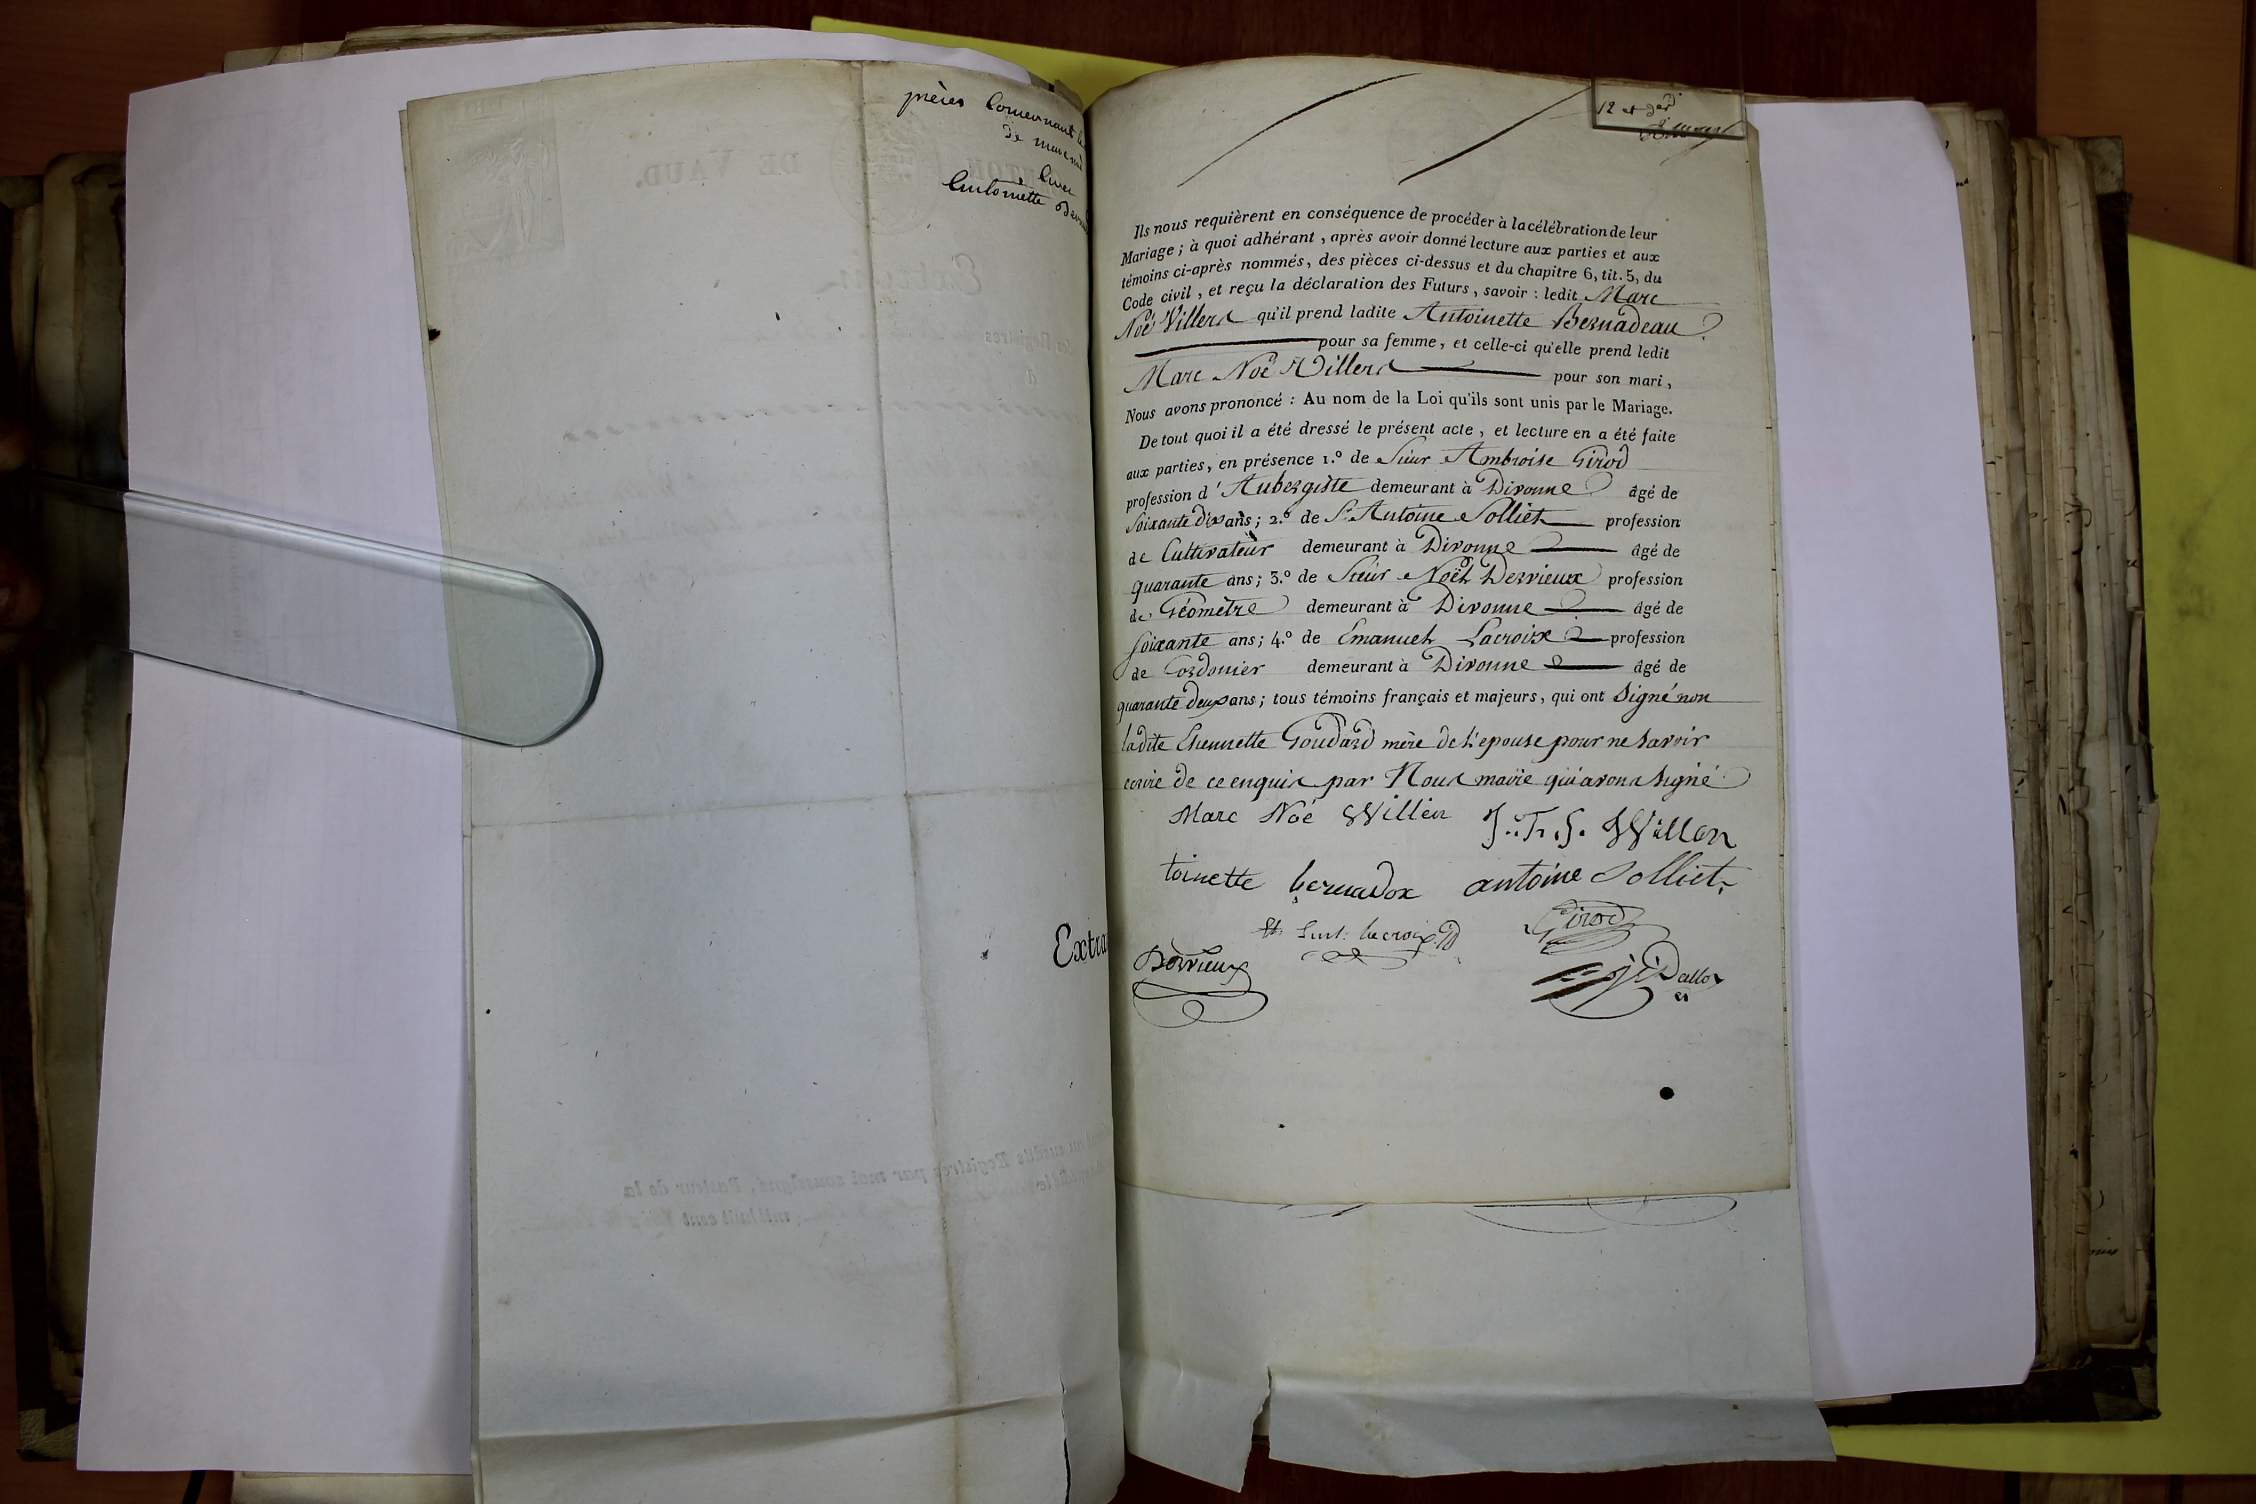 pièces Concernant le
de marc noé
avec
antoinette Berna
Extra
12 et der
Ils nous requièrent en conséquence de procéder à la célébration de leur
Mariage ; à quoi adhérant , après avoir donné lecture aux parties et aux
témoins ci-après nommés, des pièces ci-dessus et du chapitre 6, tit. 5, du
Code civil , et reçu la déclaration des Futurs , savoir : ledit Marc
Noé Villers qu'il prend ladite Antoinette Bernadeau
pour sa femme, et celle-ci qu'elle prend ledit
Marc Noé Villers pour son mari ,
Nous avons prononcé : Au nom de la Loi qu'ils sont unis par le Mariage.
De tout quoi il a été dressé le présent acte , et lecture en a été faite
aux parties, en présence 1.º de Sieur Ambroise Girod
profession d'Aubergiste demeurant à Divonne âgé de
soixante dix ans ; 2.º de Sr. Antoine Solliet profession
de Cultivateur demeurant à Divonne âgé de
quarante ans ; 3.º de Sieur Noël Derrieux profession
de Géomètre demeurant à Divonne âgé de
soixante ans ; 4.º de Emanuel Lacroix profession
de Cordonier demeurant à Divonne âgé de
quarante deux ans ; tous témoins français et majeurs, qui ont signé non
ladite Etiennette Goudard mère de l'epouse pour ne savoir
ecrire de ce enquis par Nous maire qui avons signé
Marc Noé Willen J. F. S. Willen
toinette bernadox antoine Solliet
lacroix Girod
Derrieux